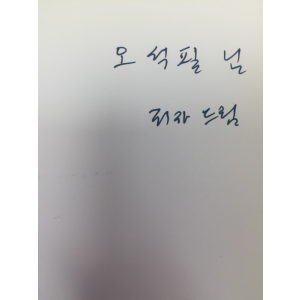 오석필 님
저자 드림